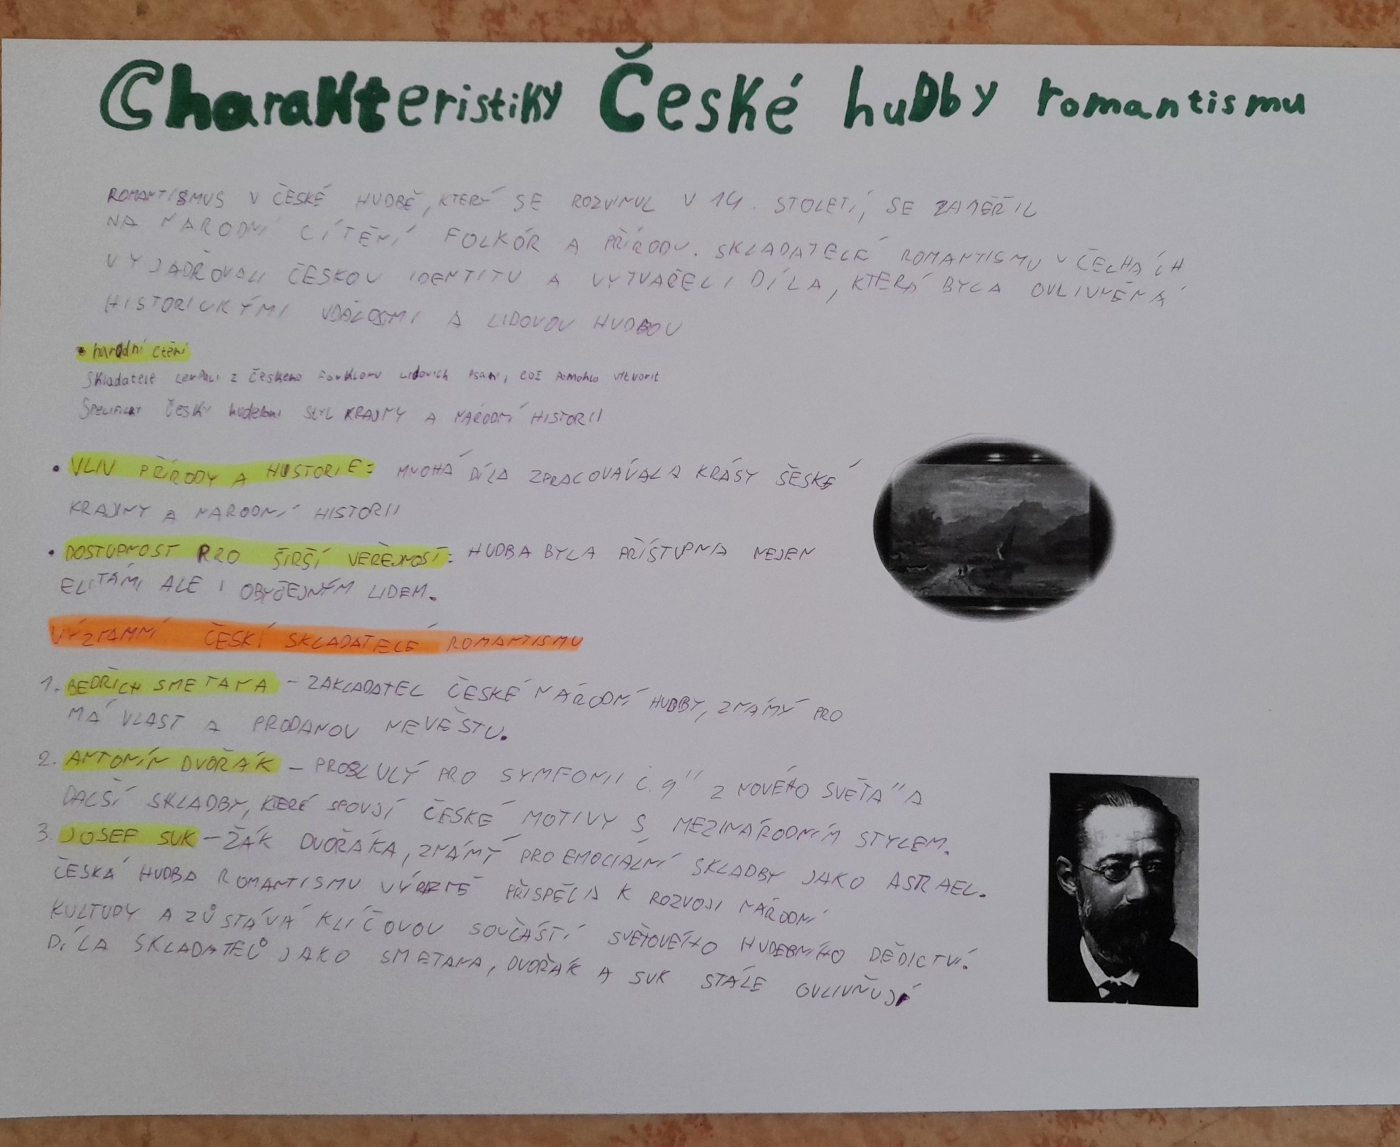 Charakteristiky České hudby romantismu
ROMANTISMUS V ČESKÉ HUDBĚ, KTERÝ SE ROZVINUL V 19. STOLETÍ, SE ZAMĚŘIL
NA NÁRODNÍ CÍTĚNÍ FOLKÓR A PŘÍRODU. SKLADATELÉ ROMANTISMU V ČECHÁCH
VYJADŘOVALI ČESKOU IDENTITU A VYTVAŘELI DÍLA, KTERÁ BYLA OVLIVNĚNA
HISTORICKÝMI UDÁLOSTMI A LIDOVOU HUDBOU
• národní ctění
Skladatelé čerpali z Českeho Lidovich Psaní, COŽ Pomohlo vitvořit
Specifický Český hudební STYL KRAJNY A NÁRODNÍ HISTORII
• VLIV PŘÍRODY A HISTORIE: MNOHÁ DÍLA ZPRACOVÁVALA KRÁSY ŠESKÉ
KRAJNY A NARODNÍ HISTORII
• DOSTUPNOST PRO ŠIRŠÍ VEŘEJNOST: HUDBA BYLA PŘÍSTUPNA NEJEN
ELITÁMI ALE I OBYČEJNÝM LIDEM.
VÝZNAMNÍ ČESKÍ SKLADATELÉ ROMANTISMU
1. BEDŘICH SMETANA – ZAKLADATEL ČESKÉ NÁRODNÍ HUDBY, ZNÁMÝ PRO
MÁ VLAST A PRODANOU NEVĚSTU.
2. ANTONÍN DVOŘÁK – PROSLULÝ PRO SYMFONII Č. 9 " Z NOVÉHO SVĚTA" A
DALŠÍ SKLADBY, KTERÉ SPOJUJÍ ČESKÉ MOTIVY S MEZINÁRODNÍM STYLEM.
3. JOSEF SUK – ŽÁK DVOŘÁKA, ZNÁMÝ PRO EMOCIÁLNÍ SKLADBY JAKO ASRAEL.
ČESKÁ HUDBA ROMANTISMU VÝRAZNĚ PŘISPĚLA K ROZVOJI NÁRODNÍ
KULTURY A ZŮSTÁVÁ KLÍČOVOU SOUČÁSTÍ SVĚTOVÉHO HUDEBNÍHO DĚDICTVÍ.
DÍLA SKLADATELŮ JAKO SMETANA, DVOŘÁK A SUK STÁLE OVLIVŇUJÍ